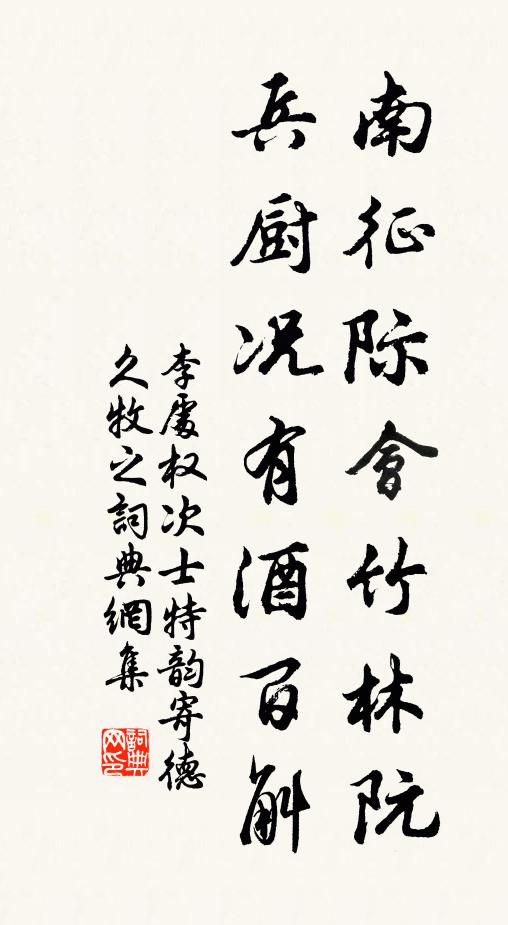 南征际會竹林阮
兵厨况有酒百斛
李處权次士特韵寄德
久牧之詞典網集
詞典网印